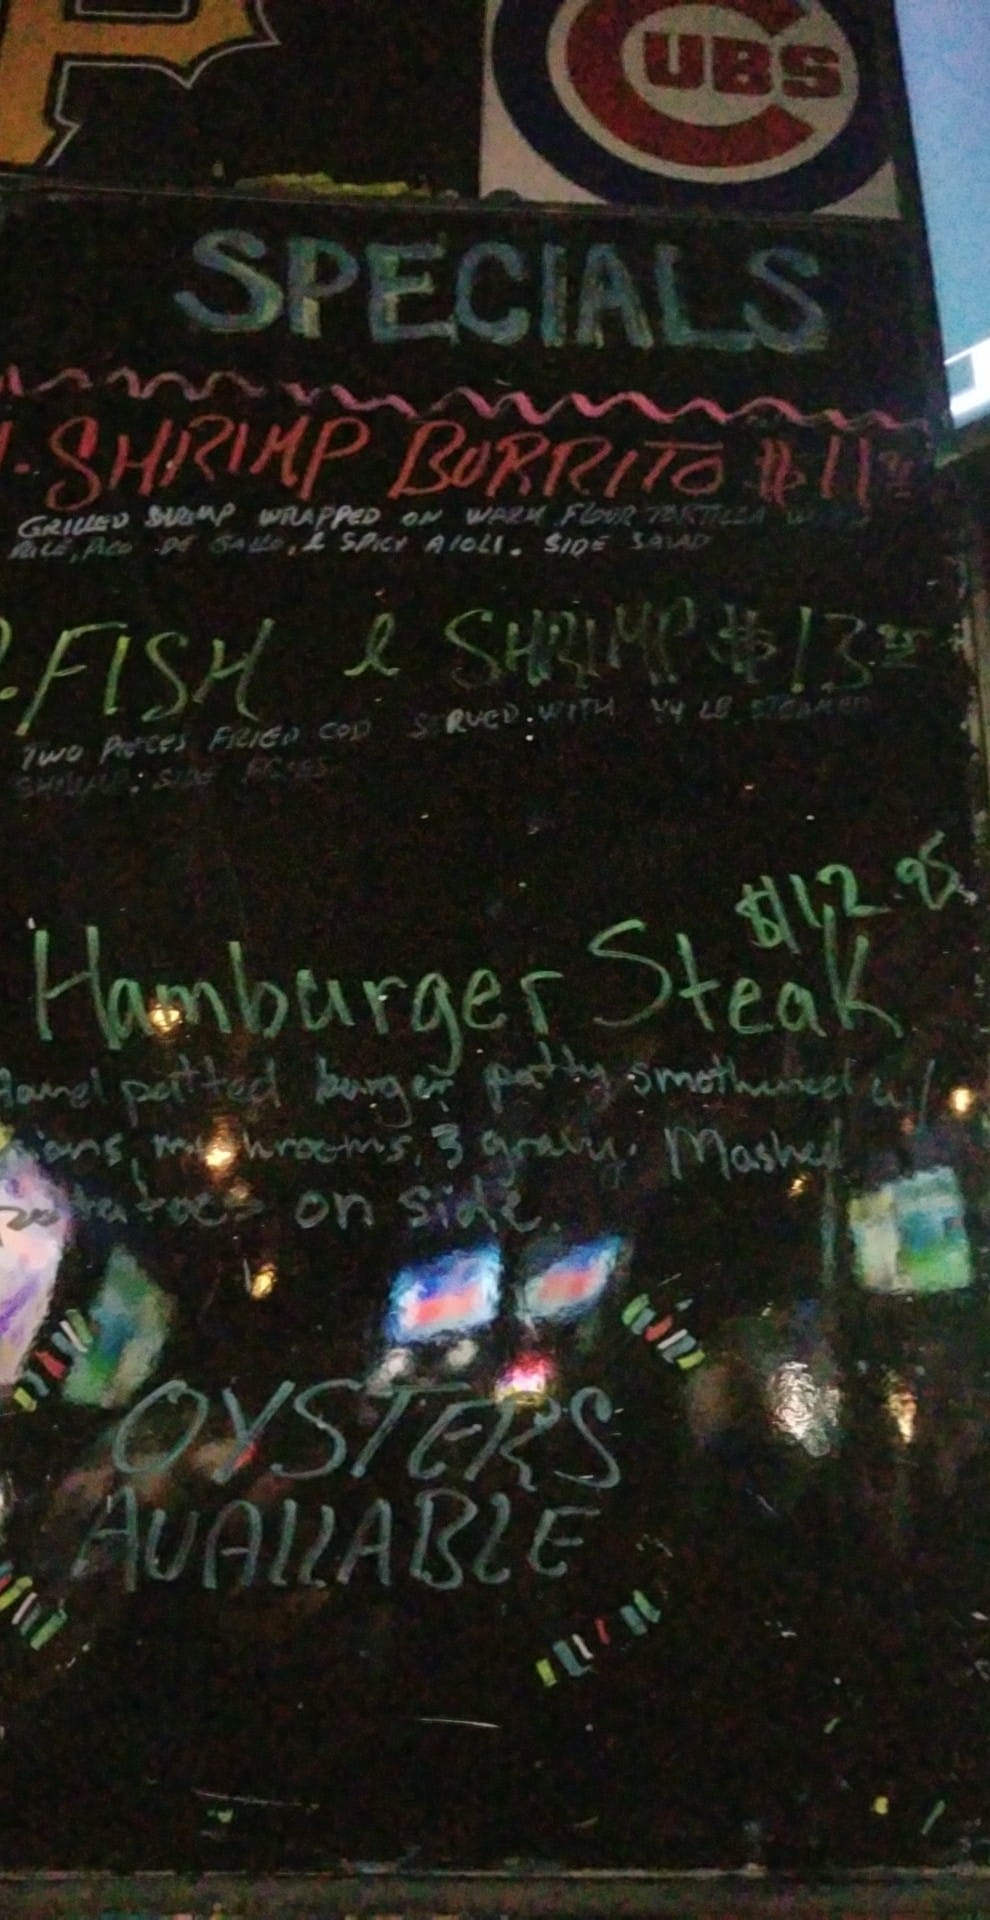 P
CUBS
SPECIALS
1-SHRIMP BURRITO $11
GRILLED SHRIMP WRAPPED ON WARM FLOUR TORTILLA
RICE, PICO DE GALLO, & SPICY AIOLI. SIDE SALAD
FISH & SHRIMP $13
TWO PIECES FRIED COD SERVED WITH 1/4 LB STEAMED
SHRIMP. SIDE
$12.95
Hamburger Steak
Hand patted burger patty smothered w/
mushrooms, & gravy. Mashed
on side.
OYSTERS
AVAILABLE